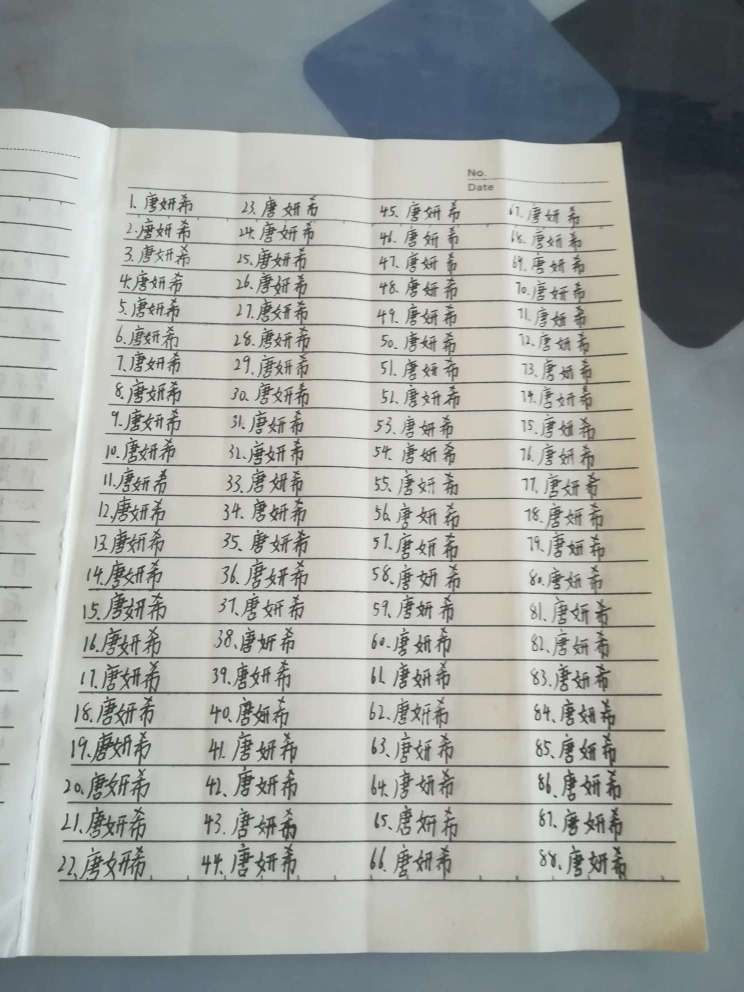 No.
Date
1. 唐妍希 23. 唐妍希 45. 唐妍希 67. 唐妍希
2. 唐妍希 24. 唐妍希 46. 唐妍希 68. 唐妍希
3. 唐妍希 25. 唐妍希 47. 唐妍希 69. 唐妍希
4. 唐妍希 26. 唐妍希 48. 唐妍希 70. 唐妍希
5. 唐妍希 27. 唐妍希 49. 唐妍希 71. 唐妍希
6. 唐妍希 28. 唐妍希 50. 唐妍希 72. 唐妍希
7. 唐妍希 29. 唐妍希 51. 唐妍希 73. 唐妍希
8. 唐妍希 30. 唐妍希 52. 唐妍希 74. 唐妍希
9. 唐妍希 31. 唐妍希 53. 唐妍希 75. 唐妍希
10. 唐妍希 32. 唐妍希 54. 唐妍希 76. 唐妍希
11. 唐妍希 33. 唐妍希 55. 唐妍希 77. 唐妍希
12. 唐妍希 34. 唐妍希 56. 唐妍希 78. 唐妍希
13. 唐妍希 35. 唐妍希 57. 唐妍希 79. 唐妍希
14. 唐妍希 36. 唐妍希 58. 唐妍希 80. 唐妍希
15. 唐妍希 37. 唐妍希 59. 唐妍希 81. 唐妍希
16. 唐妍希 38. 唐妍希 60. 唐妍希 82. 唐妍希
17. 唐妍希 39. 唐妍希 61. 唐妍希 83. 唐妍希
18. 唐妍希 40. 唐妍希 62. 唐妍希 84. 唐妍希
19. 唐妍希 41. 唐妍希 63. 唐妍希 85. 唐妍希
20. 唐妍希 42. 唐妍希 64. 唐妍希 86. 唐妍希
21. 唐妍希 43. 唐妍希 65. 唐妍希 87. 唐妍希
22. 唐妍希 44. 唐妍希 66. 唐妍希 88. 唐妍希